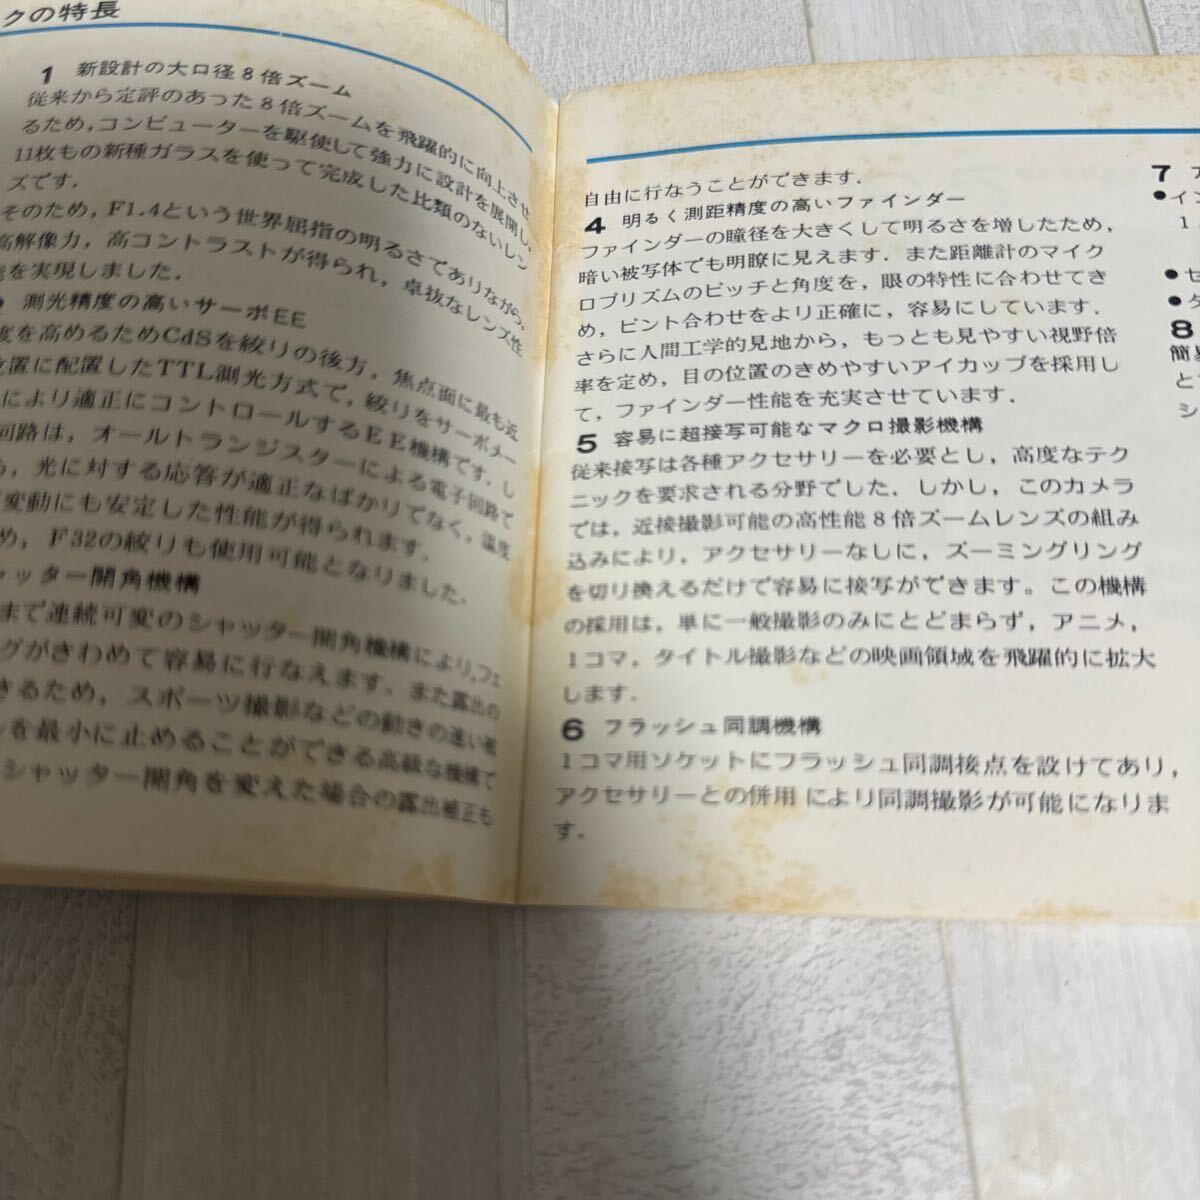 クの特長
1 新設計の大口径8倍ズーム
従来から定評のあった8倍ズームを飛躍的に向上させ
るため,コンピューターを駆使して強力に設計を展開し,
11枚もの新種ガラスを使って完成した比類のないレン
ズです.
そのため,F1.4という世界屈指の明るさでありながら,
高解像力,高コントラストが得られ,卓抜なレンズ性
を実現しました.
測光精度の高いサーボEE
度を高めるためCdSを絞りの後方,焦点面に最も近
位置に配置したTTL測光方式で,絞りをサーボメー
により適正にコントロールするEE機構です.し
回路は,オールトランジスターによる電子回路で
,光に対する応答が適正なばかりでなく,温度
変動にも安定した性能が得られます.
め,F32の絞りも使用可能となりました.
ャッター開角機構
まで連続可変のシャッター開角機構により,フェ
グがきわめて容易に行なえます.また露出の
きるため,スポーツ撮影などの動きの速い被
を最小に止めることができる高級な機構で
シャッター開角を変えた場合の露出補正も
自由に行なうことができます.
4 明るく測距精度の高いファインダー
ファインダーの瞳径を大きくして明るさを増したため,
暗い被写体でも明瞭に見えます.また距離計のマイク
ロプリズムのピッチと角度を,眼の特性に合わせてき
め,ピント合わせをより正確に,容易にしています.
さらに人間工学的見地から,もっとも見やすい視野倍
率を定め,目の位置のきめやすいアイカップを採用し
て,ファインダー性能を充実させています.
5 容易に超接写可能なマクロ撮影機構
従来接写は各種アクセサリーを必要とし,高度なテク
ニックを要求される分野でした.しかし,このカメラ
では,近接撮影可能の高性能8倍ズームレンズの組み
込みにより,アクセサリーなしに,ズーミングリング
を切り換えるだけで容易に接写ができます。この機構
の採用は,単に一般撮影のみにとどまらず,アニメ,
1コマ,タイトル撮影などの映画領域を飛躍的に拡大
します.
6 フラッシュ同調機構
1コマ用ソケットにフラッシュ同調接点を設けてあり,
アクセサリーとの併用により同調撮影が可能になりま
す.
7
●イ
1
●セ
●
8
簡易
と
シ